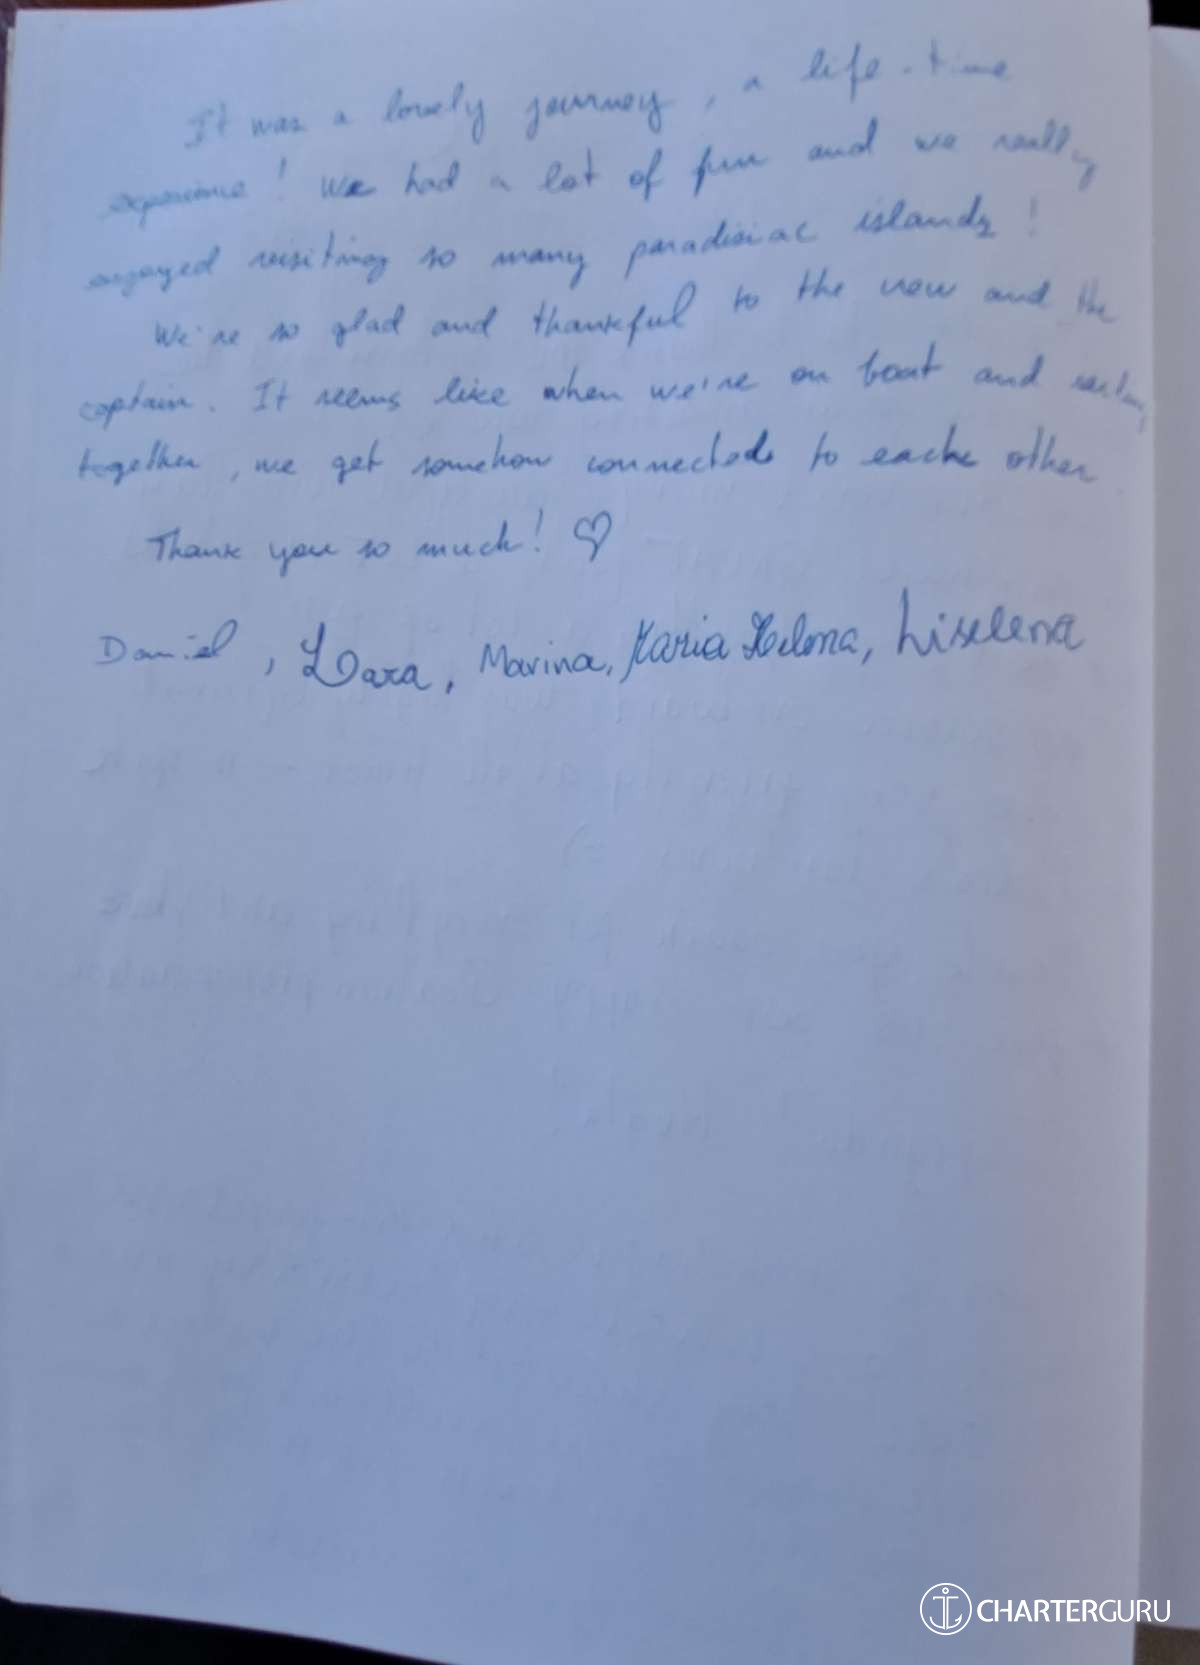 It was a lovely journey, a life-time
experience! We had a lot of fun and we really
enjoyed visiting so many paradisiac islands!
We're so glad and thankful to the crew and the
captain. It seems like when we're on boat and
together, we get somehow connected to each other
Thank you so much! ♡
Daniel, Lara, Marina, Maria Helena, Liselena
CHARTERGURU